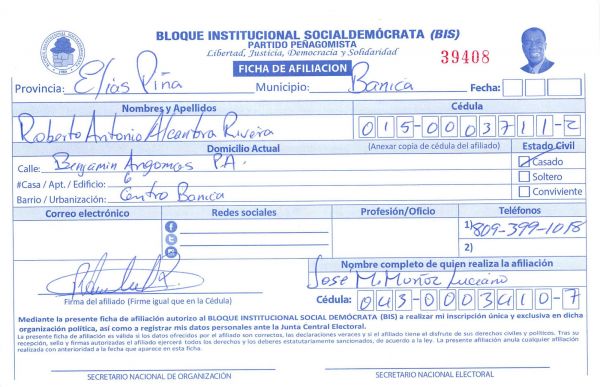 BLOQUE INSTITUCIONAL SOCIALDEMÓCRATA (BIS)
PARTIDO PEÑAGOMISTA
Libertad, Justicia, Democracia y Solidaridad
39408
FICHA DE AFILIACION
Provincia: Elias Piña Municipio: Banica Fecha:
Nombres y Apellidos Cédula
Roberto Antonio Alcantara Rivera 015-0003711-2
Domicilio Actual (Anexar copia de cédula del afiliado) Estado Civil
Calle: Benjamin P.A. Casado
#Casa / Apt. / Edificio: 6 Soltero
Barrio / Urbanización: Centro Banica Conviviente
Correo electrónico Redes sociales Profesión/Oficio Teléfonos
1) 809-399-1018
2)
Nombre completo de quien realiza la afiliación
Jose M. Muñoz Luciano
Firma del afiliado (Firme igual que en la Cédula) Cédula: 043-0003410-7
Mediante la presente ficha de afiliación autorizo al BLOQUE INSTITUCIONAL SOCIAL DEMÓCRATA (BIS) a realizar mi inscripción única y exclusiva en dicha
organización política, así como a registrar mis datos personales ante la Junta Central Electoral.
La presente ficha de afiliación es válida si los datos ofrecidos por el afiliado son correctos, las declaraciones veraces y si el afiliado tiene el disfrute de sus derechos civiles y políticos. Tras su
recepción, sello y firmas autorizadas el afiliado ejercerá todos los derechos y los deberes estatutariamente sancionados, de acuerdo a la ley. La presente afiliación anula cualquier afiliación
realizada con anterioridad a la fecha que aparece en esta ficha.
SECRETARIO NACIONAL DE ORGANIZACIÓN SECRETARIO NACIONAL ELECTORAL